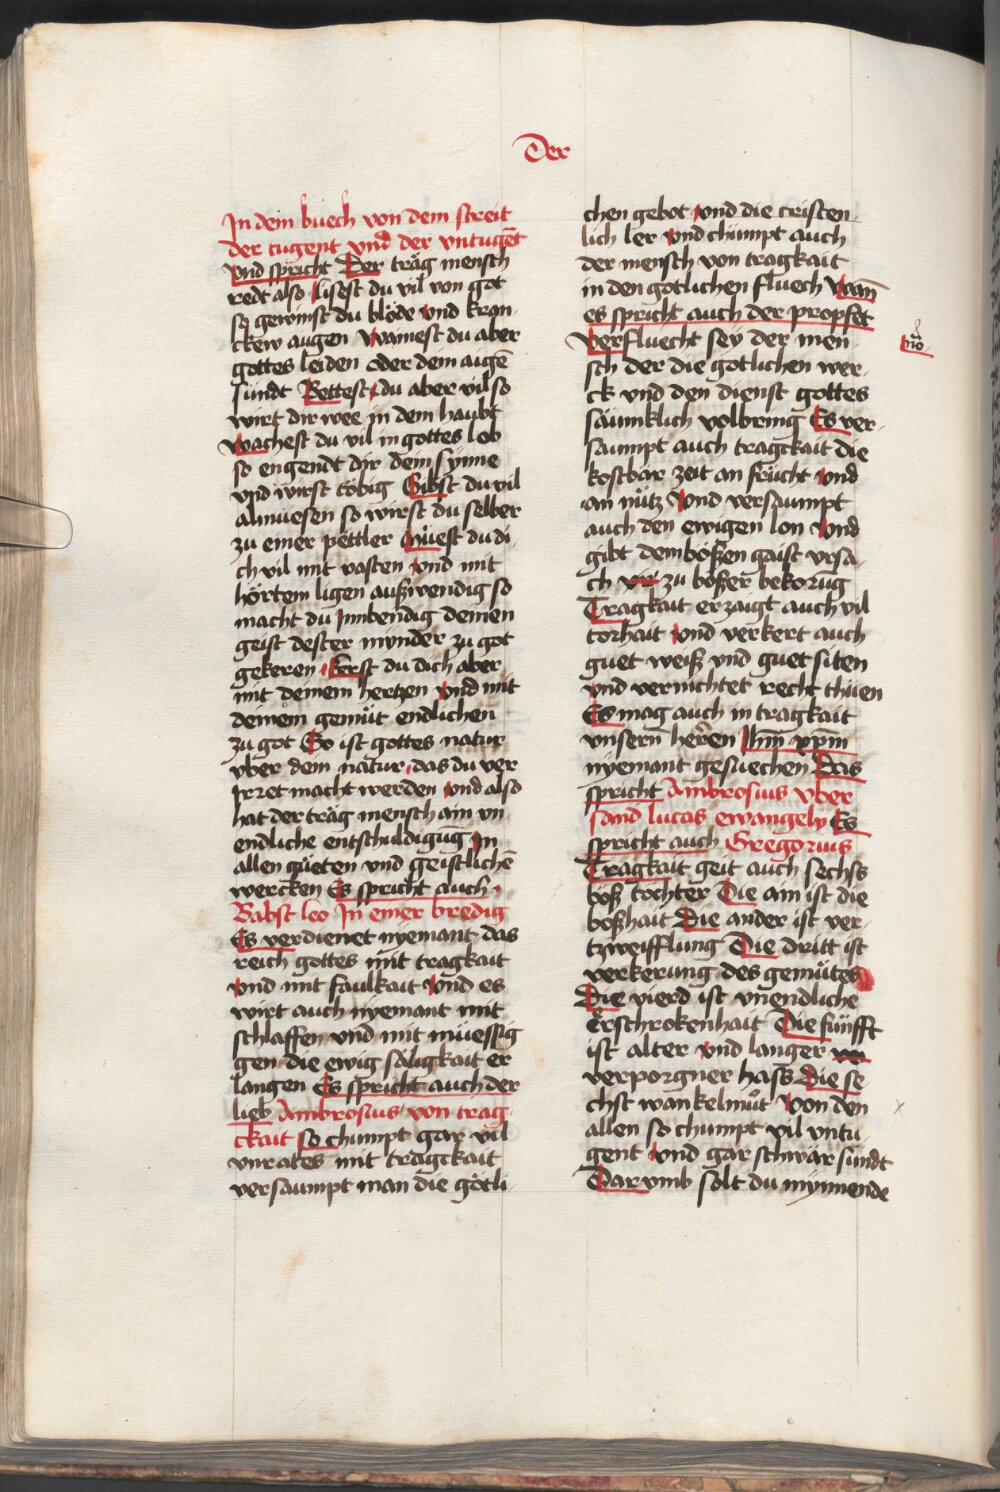 Der
In dem buech von dem streit
der tugent vnd der vntugēt
Vnd spricht Der träg mensch
redt also lisest du vil von got
so gewinst du blöde vnd kran
ckew augen Wainest du aber
gottes leiden oder dem aigē
sündt Bettest du aber vil so
wirt dir wee in dem haubt
Wachest du vil in gottes lob
so engendt dir dem synne
vnd wirst töbig Gibst du vil
almuesen so wirst du selber
zu einer pettler Müest du di
ch vil mit vasten vnd mit
hörtem ligen außwendig so
macht du Innbendig deinen
geist dester mynder zu got
gekeren kerst du dich aber
mit deinem hertzen vnd mit
deinem gemüt endlichen
zu got So ist gottes natur
vber dem natur das du ver
Irret macht werden vnd also
hat der träg mensch ain vn
endliche entschuldigūg In
allen güeten vnd geistlichē
wercken Es spricht auch
Babst leo In einer bredig
Es verdienet nyemant das
reich gottes mit tragkait
vnd mit faulkait vnd es
wirt auch nyemant mit
schlaffen vnd mit müessig
gen die ewig säligkait er
langen Es spricht auch der
lieb Ambrosius von trag
ckait so chumpt gar vil
vnrates mit trägckait
versaumpt man die götli
chen gebot vnd die cristen
lich ler vnd chümpt auch
der mensch von tragkait
in den götlichen fluech Wan̄
es spricht auch der prophet
Verfluecht sey der men
sch der die götlichen wer
ck vnd den dienst gottes
säumklich volbring Es ver
saumpt auch tragckait die
kostbar zeit an frücht vnd
an nütz Vnd versaumpt
auch den ewigen lon vnd
gibt dem bößen gaist vrsa
ch zu bößer bekorūg
Tragkait erzaigt auch vil
torhait vnd verkert auch
guet weiß vnd guet siten
vnd vernichtet recht thüen
Es mag auch in tragkait
vnsern̄ herren Ihm̄ xpm̄
nyemant gesuechen Das
spricht Ambrosius vber
sand lucas ewangely Es
spricht auch Gregorius
Tragkait geit auch sechs
böß tochter Die ain ist die
boßhait Die ander ist ver
tzweifflung Die dritt ist
verkerung des gemütes
Die vierd ist vnendliche
erschrokenhait Die fünfft
ist alter vnd langer
verporgner hass Die se
chst wankelmüt Von den
allen so chumpt vil vntu
gent vnd gar schwär sündt
Dar vmb solt du mynnende